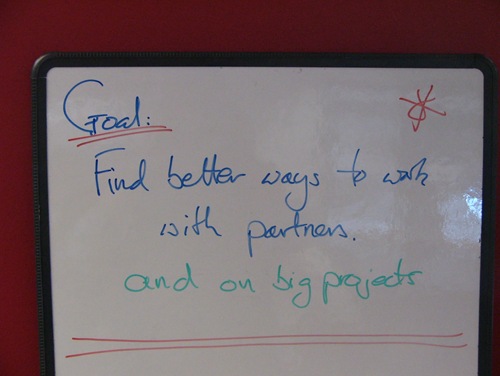 Goal:
Find better ways to work
with partners.
and on big projects